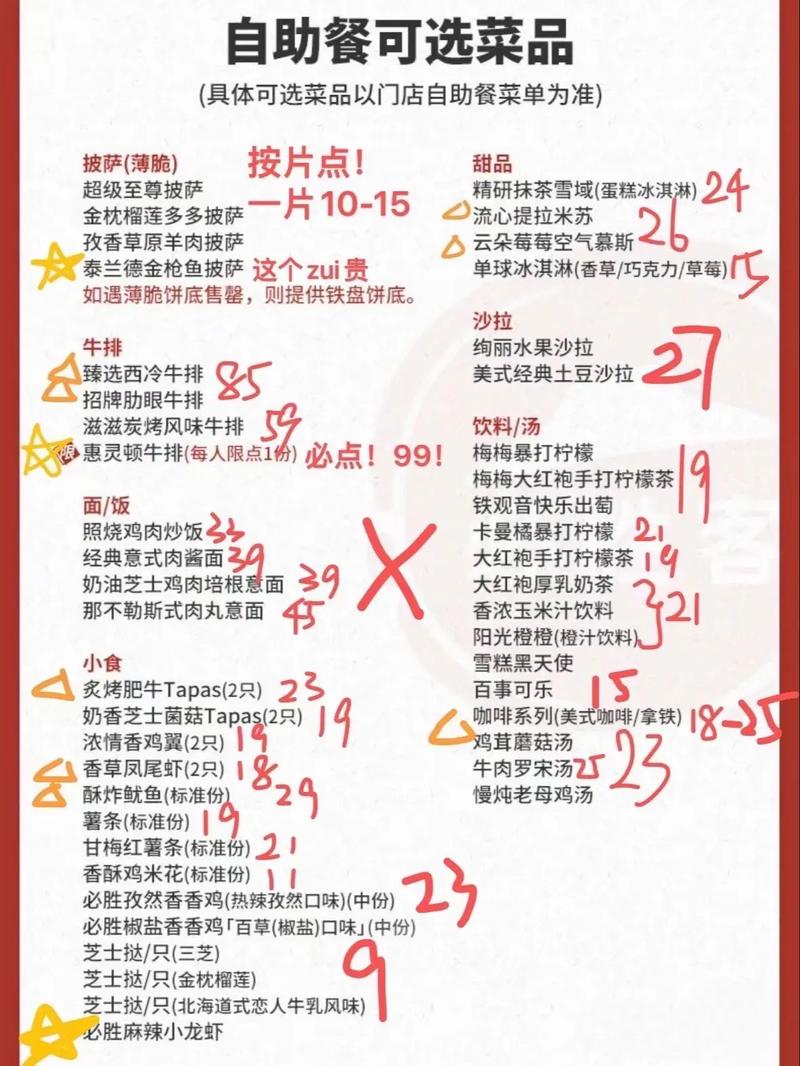 自助餐可选菜品
(具体可选菜品以门店自助餐菜单为准)
披萨(薄脆)
按片点！
超级至尊披萨
一片10-15
金枕榴莲多多披萨
孜香草原羊肉披萨
泰兰德金枪鱼披萨 这个zui贵
如遇薄脆饼底售罄，则提供铁盘饼底。
牛排
臻选西冷牛排 85
招牌肋眼牛排
滋滋炭烤风味牛排 59
限
惠灵顿牛排(每人限点1份) 必点！99！
面/饭
照烧鸡肉炒饭 33
经典意式肉酱面 39
奶油芝士鸡肉培根意面 39
那不勒斯式肉丸意面 45
小食
炙烤肥牛Tapas(2只) 23
奶香芝士菌菇Tapas(2只) 19
浓情香鸡翼(2只) 19
香草凤尾虾(2只) 18
酥炸鱿鱼(标准份) 29
薯条(标准份) 19
甘梅红薯条(标准份) 21
香酥鸡米花(标准份) 11
必胜孜然香香鸡(热辣孜然口味)(中份) 23
必胜椒盐香香鸡「百草(椒盐)口味」(中份)
芝士挞/只(三芝)
芝士挞/只(金枕榴莲) 9
芝士挞/只(北海道式恋人牛乳风味)
必胜麻辣小龙虾
甜品
精研抹茶雪域(蛋糕冰淇淋) 24
流心提拉米苏
云朵莓莓空气慕斯 26
单球冰淇淋(香草/巧克力/草莓) 15
沙拉
绚丽水果沙拉
美式经典土豆沙拉 27
饮料/汤
梅梅暴打柠檬
梅梅大红袍手打柠檬茶 19
铁观音快乐出萄
卡曼橘暴打柠檬 21
大红袍手打柠檬茶 19
大红袍厚乳奶茶
香浓玉米汁饮料 21
阳光橙橙(橙汁饮料)
雪糕黑天使
百事可乐 15
咖啡系列(美式咖啡/拿铁) 18-25
鸡茸蘑菇汤
牛肉罗宋汤 25 23
慢炖老母鸡汤